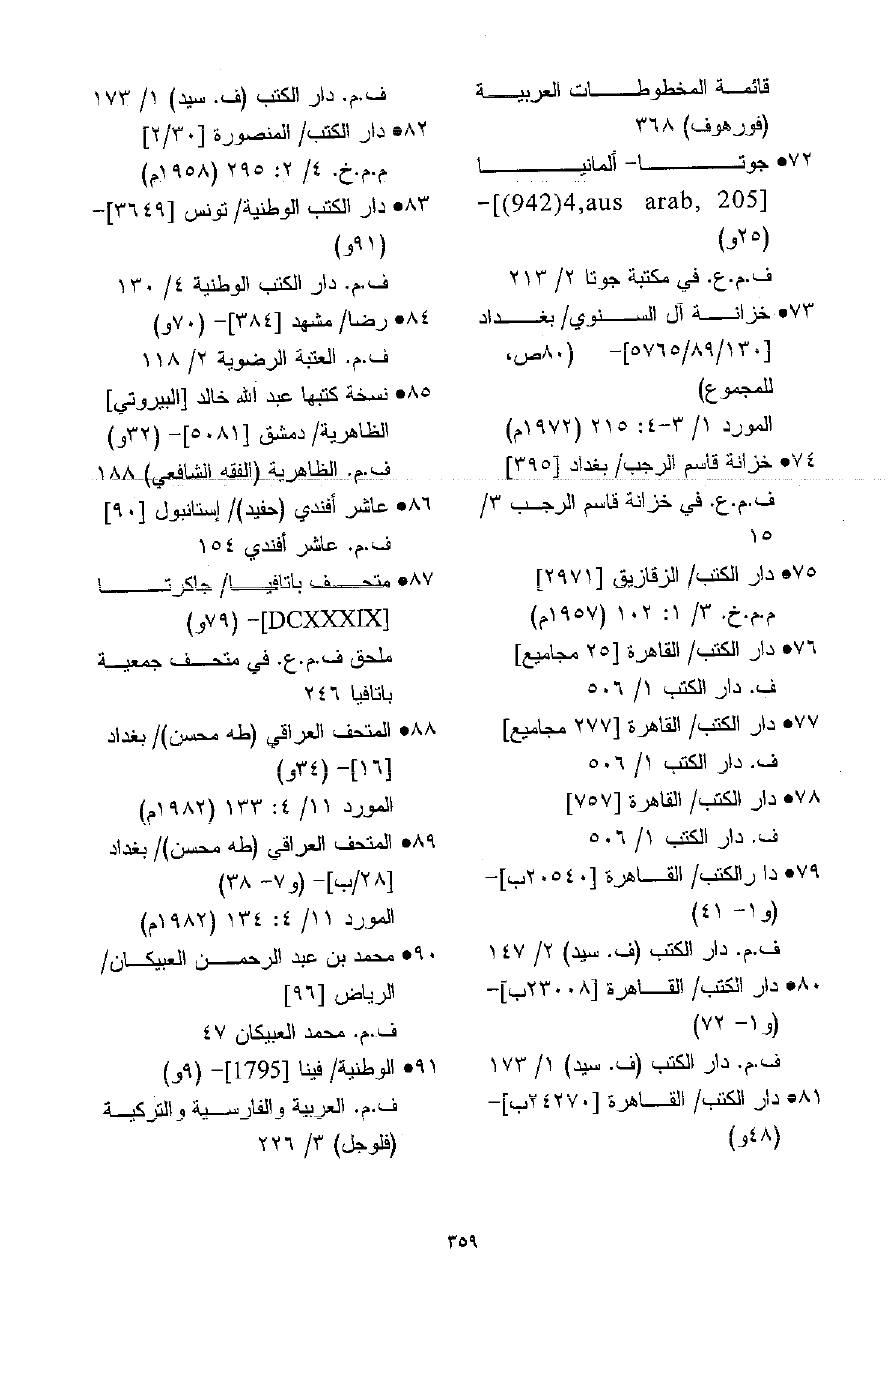 قائمة المخطوطات العربية
(فورهوف) ٣٦٨
٧٢• جوتا- ألمانيا
[205 ,aus arab,4(942)]-
(٢٥و)
ف.م.ع. في مكتبة جوتا ٢/ ٢١٣
٧٣• خزانة آل السنوي/ بغداد
[٥٧٦٥/٨٩/١٣٠]- (٨٠ص،
للمجموع)
المورد ١/ ٣-٤: ٢١٥ (١٩٧٢م)
٧٤• خزانة قاسم الرجب/ بغداد [٣٩٥]
ف.م.ع. في خزانة قاسم الرجب ٣/
١٥
٧٥• دار الكتب/ الزقازيق [٢٩٧١]
م.م.خ. ٣/ ١: ١٠٢ (١٩٥٧م)
٧٦• دار الكتب/ القاهرة [٢٥ مجاميع]
ف. دار الكتب ١/ ٥٠٦
٧٧• دار الكتب/ القاهرة [٢٧٧ مجاميع]
ف. دار الكتب ١/ ٥٠٦
٧٨• دار الكتب/ القاهرة [٧٥٧]
ف. دار الكتب ١/ ٥٠٦
٧٩• دا رالكتب/ القاهرة [٢٠٥٤٠ب]-
(و١- ٤١)
ف.م. دار الكتب (ف. سيد) ٢/ ١٤٧
٨٠• دار الكتب/ القاهرة [٢٣٠٠٨ب]-
(و١- ٧٢)
ف.م. دار الكتب (ف. سيد) ١/ ١٧٣
٨١• دار الكتب/ القاهرة [٢٤٢٧٠ب]-
(٤٨و)
ف.م. دار الكتب (ف. سيد) ١/ ١٧٣
٨٢• دار الكتب/ المنصورة [٢/٣٠]
م.م.خ. ٤/ ٢: ٢٩٥ (١٩٥٨م)
٨٣• دار الكتب الوطنية/ تونس [٣٦٤٩]-
(٩١و)
ف.م. دار الكتب الوطنية ٤/ ١٣٠
٨٤• رضا/ مشهد [٣٨٤]- (٧٠و)
ف.م. العتبة الرضوية ٢/ ١١٨
٨٥• نسخة كتبها عبد الله خالد [البيروتي]
الظاهرية/ دمشق [٥٠٨١]- (٣٢و)
ف.م. الظاهرية (الفقه الشافعي) ١٨٨
٨٦• عاشر أفندي (حفيد)/ إستانبول [٩٠]
ف.م. عاشر أفندي ١٥٤
٨٧• متحف باتافيا/ جاكرتا
[DCXXXIX]- (٧٩و)
ملحق ف.م.ع. في متحف جمعية
باتافيا ٢٤٦
٨٨• المتحف العراقي (طه محسن)/ بغداد
[١٦]- (٣٤و)
المورد ١١/ ٤: ١٣٣ (١٩٨٢م)
٨٩• المتحف العراقي (طه محسن)/ بغداد
[٢٨/ب]- (و٧- ٣٨)
المورد ١١/ ٤: ١٣٤ (١٩٨٢م)
٩٠• محمد بن عبد الرحمن العبيكان/
الرياض [٩٦]
ف.م. محمد العبيكان ٤٧
٩١• الوطنية/ فينا [1795]- (٩و)
ف.م. العربية والفارسية والتركية
(فلوجل) ٣/ ٢٢٦
٣٥٩